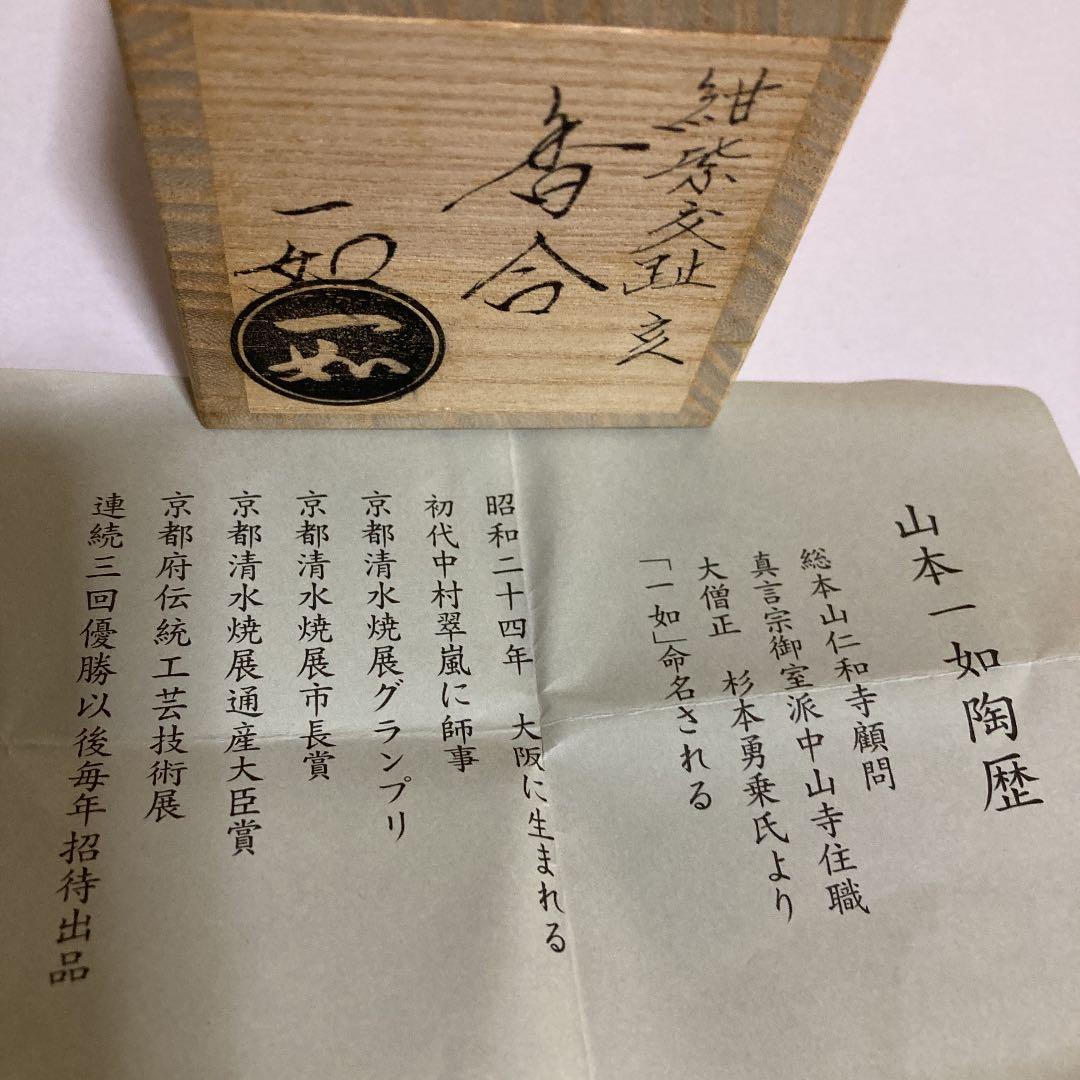 紺紫交趾 亥
香合
一如
一如
山本一如陶歴
総本山仁和寺顧問
真言宗御室派中山寺住職
大僧正 杉本勇乗氏より
「一如」命名される
昭和二十四年 大阪に生まれる
初代中村翠嵐に師事
京都清水焼展グランプリ
京都清水焼展市長賞
京都清水焼展通産大臣賞
京都府伝統工芸技術展
連続三回優勝以後毎年招待出品